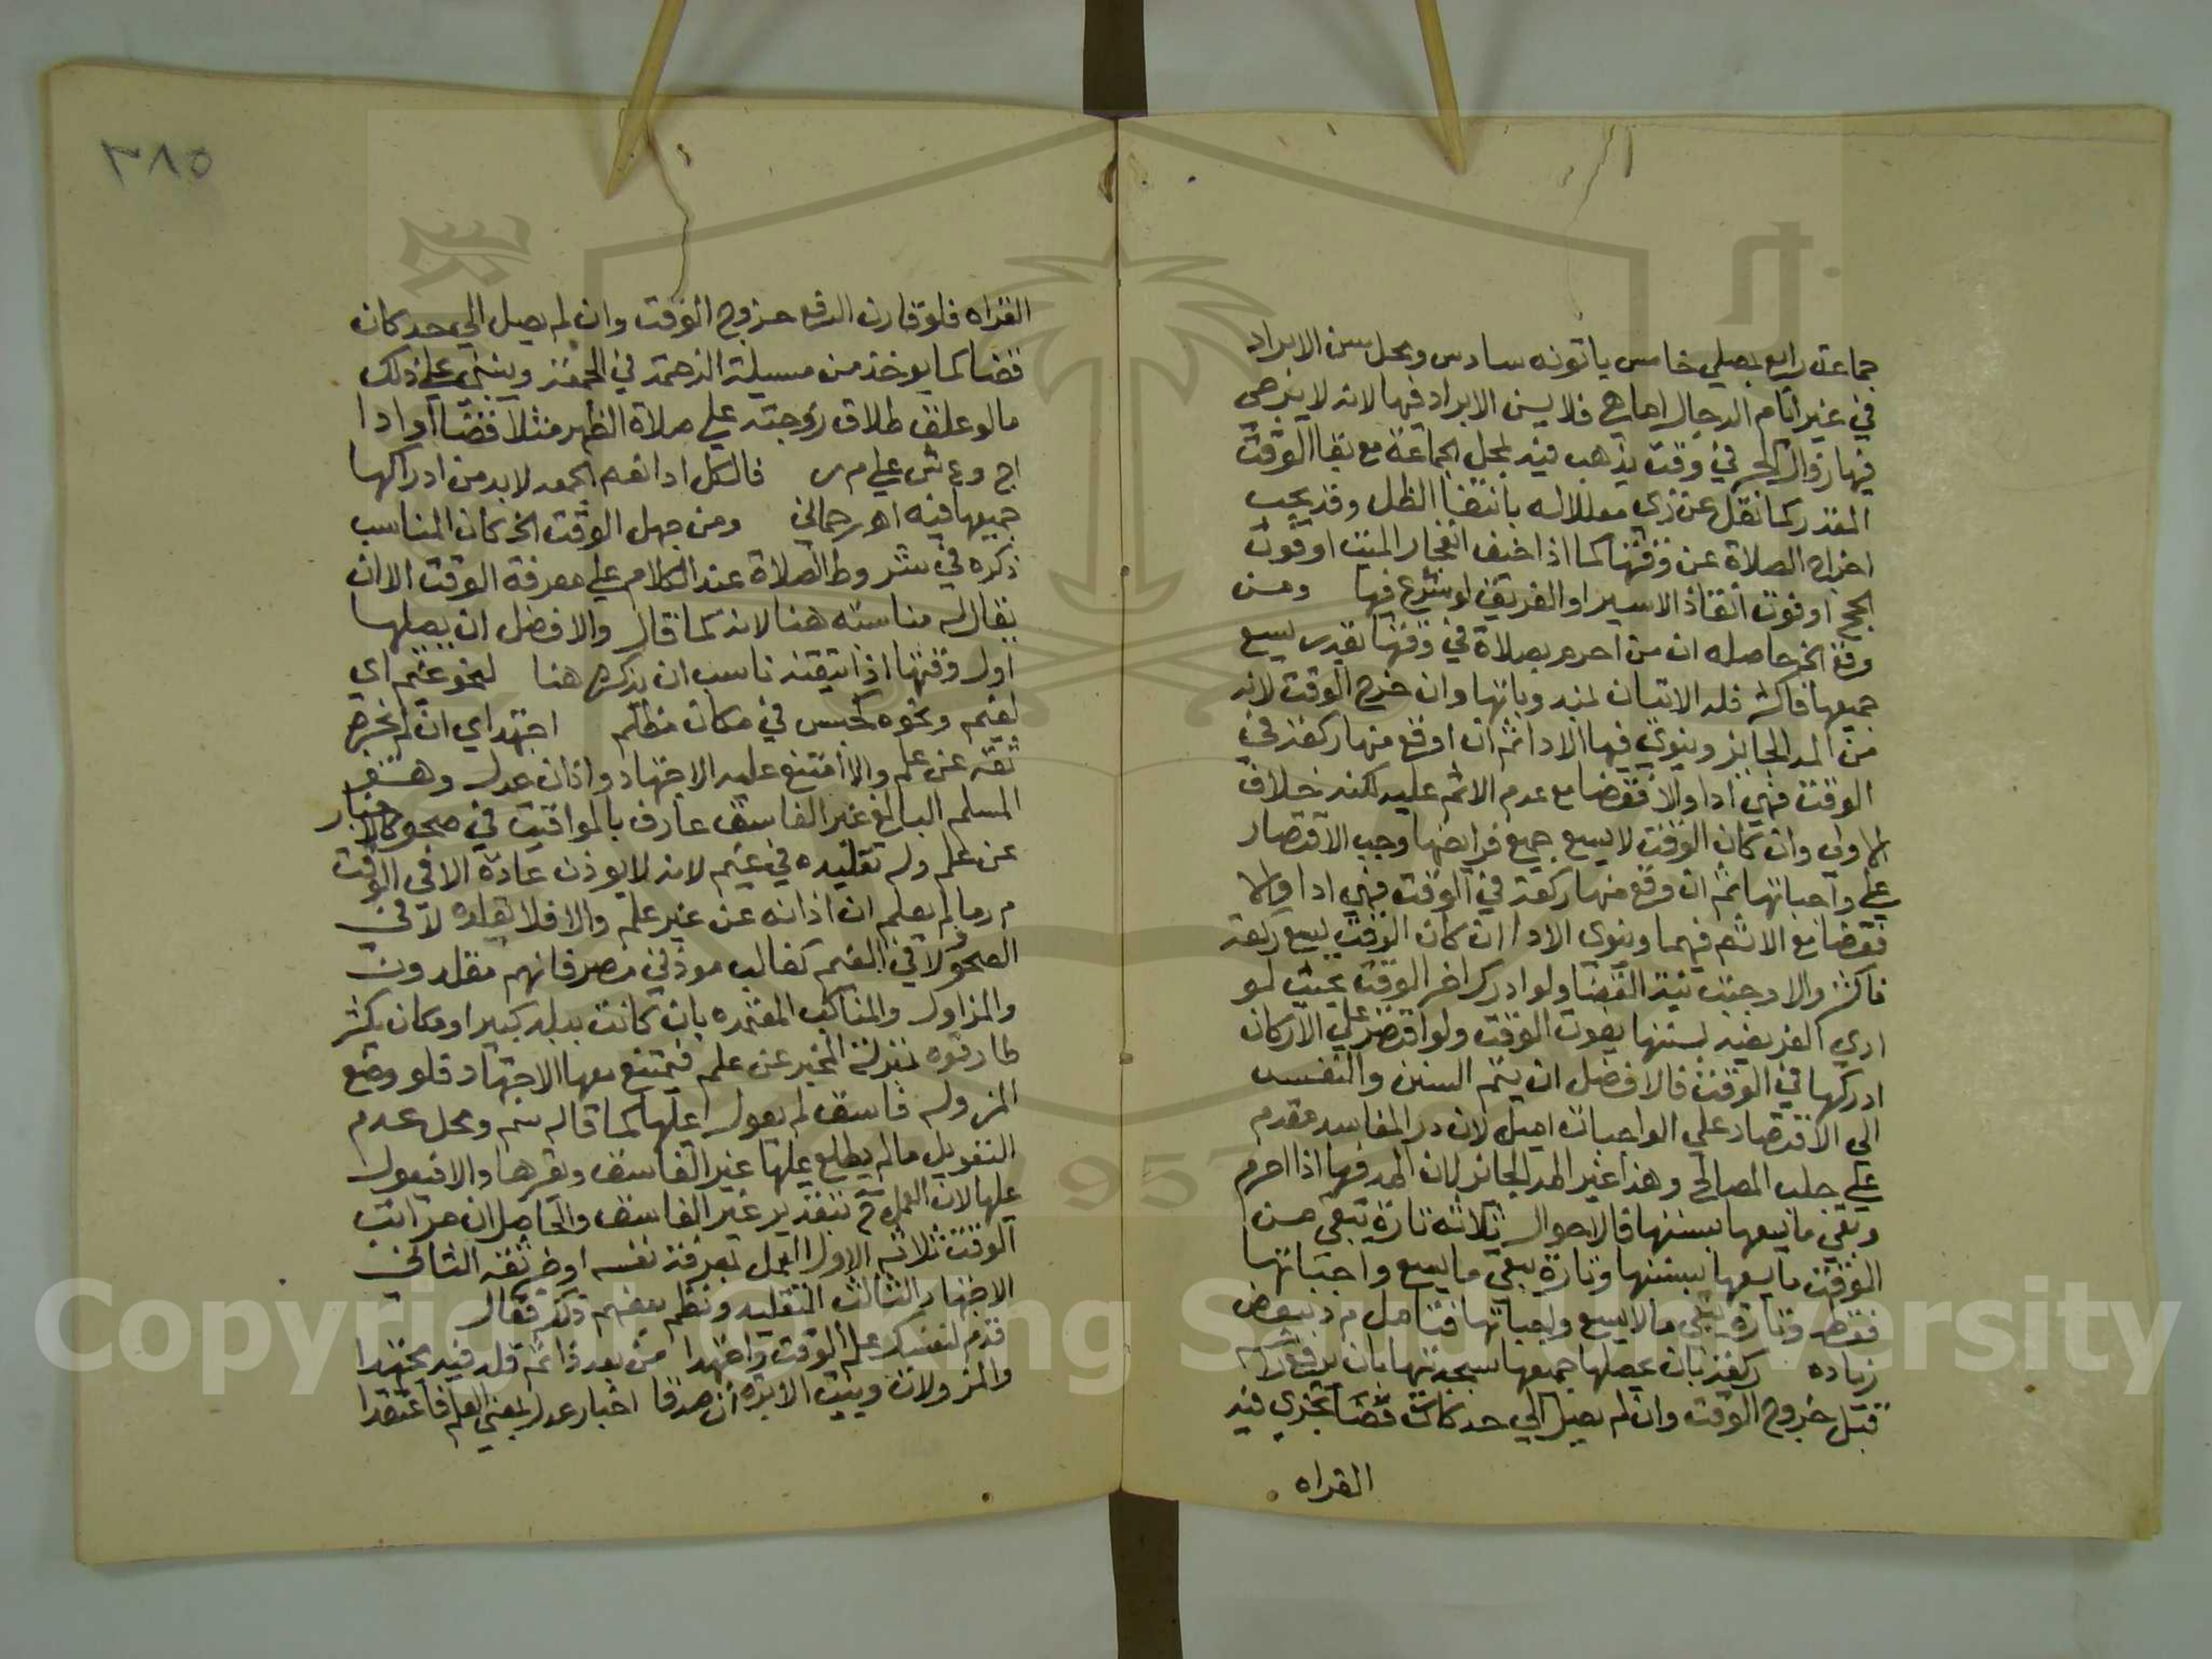 جماعة رابع يصلي خامس ياتونه سادس ومحل سن الابراد
في غير ايام الدجال اما هي فلا يسن الابراد فيها لانه لا يرجي
فيها زوال الحر في وقت يذهب فيه لمحل الجماعة مع بقا الوقت
المقدر كما نقل عن زي معللا له بانتفا الظل وقد يجب
اخراج الصلاة عن وقتها كما اذا خيف انفجار الميت او فوت
الحج او فوت انقاذ الاسير او الغريق لو شرع فيها ومن
وقع الخ حاصله ان من احرم بصلاة في وقتها بقدر يسع
جميعها فاكثر فله الاتيان بمندوباتها وان خرج الوقت لانه
من المد الجايز وينوي فيها الادا ثم ان اوقع منها ركعة في
الوقت فهي ادا والا فقضا مع عدم الاثم عليه لكنه خلاف
الاولى وان كان الوقت لا يسع جميع فرايضها وجب الاقتصار
علي واجباتها ثم ان وقع منها ركعة في الوقت فهي ادا والا
فقضا مع الاثم فيهما وينوي الادا ان كان الوقت يسع ركعة
فاكثر والا وجبت نية القضا ولو ادرك اخر الوقت بحيث لو
ادي الفريضة بسننها يفوت الوقت ولو اقتصر علي الاركان
ادركها في الوقت فالافضل ان يتم السنن والنفس
الى الاقتصار علي الواجبات اميل لان درا المفاسد مقدم
علي جلب المصالح وهذا غير المد الجائز لان المد فيها اذا احرم
وبقي ما يسعها بسننها فالاحوال ثلاثة تارة يبقي من
الوقت ما يسعها بسننها وتارة يبقي ما يسع واجباتها
فقط وتارة يبقي ما لا يسع واجباتها فتامل م د ببعض
زياده ركعة بان حصلها جميعها بسجدتيها بان يرفع راسه
قبل خروج الوقت وان لم يصل الي حد كانت قضا تجزي فيه
القراه
٣٨٥
القراه فلو قارن الرفع خروج الوقت وان لم يصل الي حد كان
قضا كما يوخذ من مسيلة الزحمة في الجمعة وينبني علي ذلك
ما لو علق طلاق زوجته علي صلاة الظهر مثلا قضا او ادا
اج وع ش علي م ر فالكل ادا نعم الجمعه لا بد من ادراكها
جميعها فيه اهـ رحماني ومن جهل الوقت الخ كان المناسب
ذكره في شروط الصلاة عند الكلام علي معرفة الوقت الا ان
يقال له مناسبة هنا لانه لما قال والافضل ان يصليها
اول وقتها اذا تيقنه ناسب ان يذكره هنا لنحو غيم اي
لغيم ونحوه كحبس في مكان مظلم اجتهد اي ان لم يخبره
ثقة عن علم والا امتنع عليه الاجتهاد واذان عدل وهو
المسلم البالغ غير الفاسق عارف بالمواقيت في صحو كالاخبار
عن علم وله تقليده في غيم لانه لا يوذن عادة الا في الوقت
م ر ما لم يعلم ان اذانه عن غير علم والا فلا يقلده لا في
الصحو ولا في الغيم كغالب موذني مصر فانهم مقلدون
والمزاول والمناكب المعتمده بان كانت ببلد كبير او مكان يكثر
طارقوه بمنزلة المخبر عن علم فيمتنع معها الاجتهاد فلو وضع
المزوله فاسق لم يعول عليها كما قاله سم ومحل عدم
التعويل ما لم يطلع عليها غير الفاسق ويقرها والا فيعول
عليها لان العمل ح بتقدير غير الفاسق والحاصل ان مراتب
الوقت ثلاثة الاول العمل بمعرفة نفسه او خبر ثقه الثاني
الاجتهاد الثالث التقليد ونظم بعضهم ذلك فقال
قدم لنفسك علم الوقت واجتهدا من بعد ذا ثم قلد فيه مجتهدا
والمزولات وبيت الابره ان صدقا اخبار عدل بمعني العلم فاعتقدا